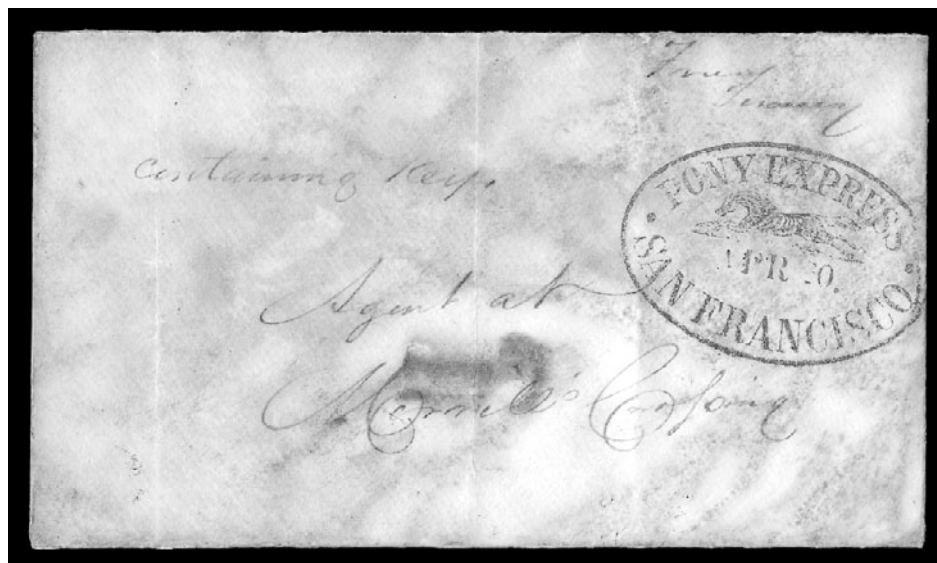 containing Keys.
PONY EXPRESS
APR
SAN FRANCISCO
Agent at
Merrill's Crossing